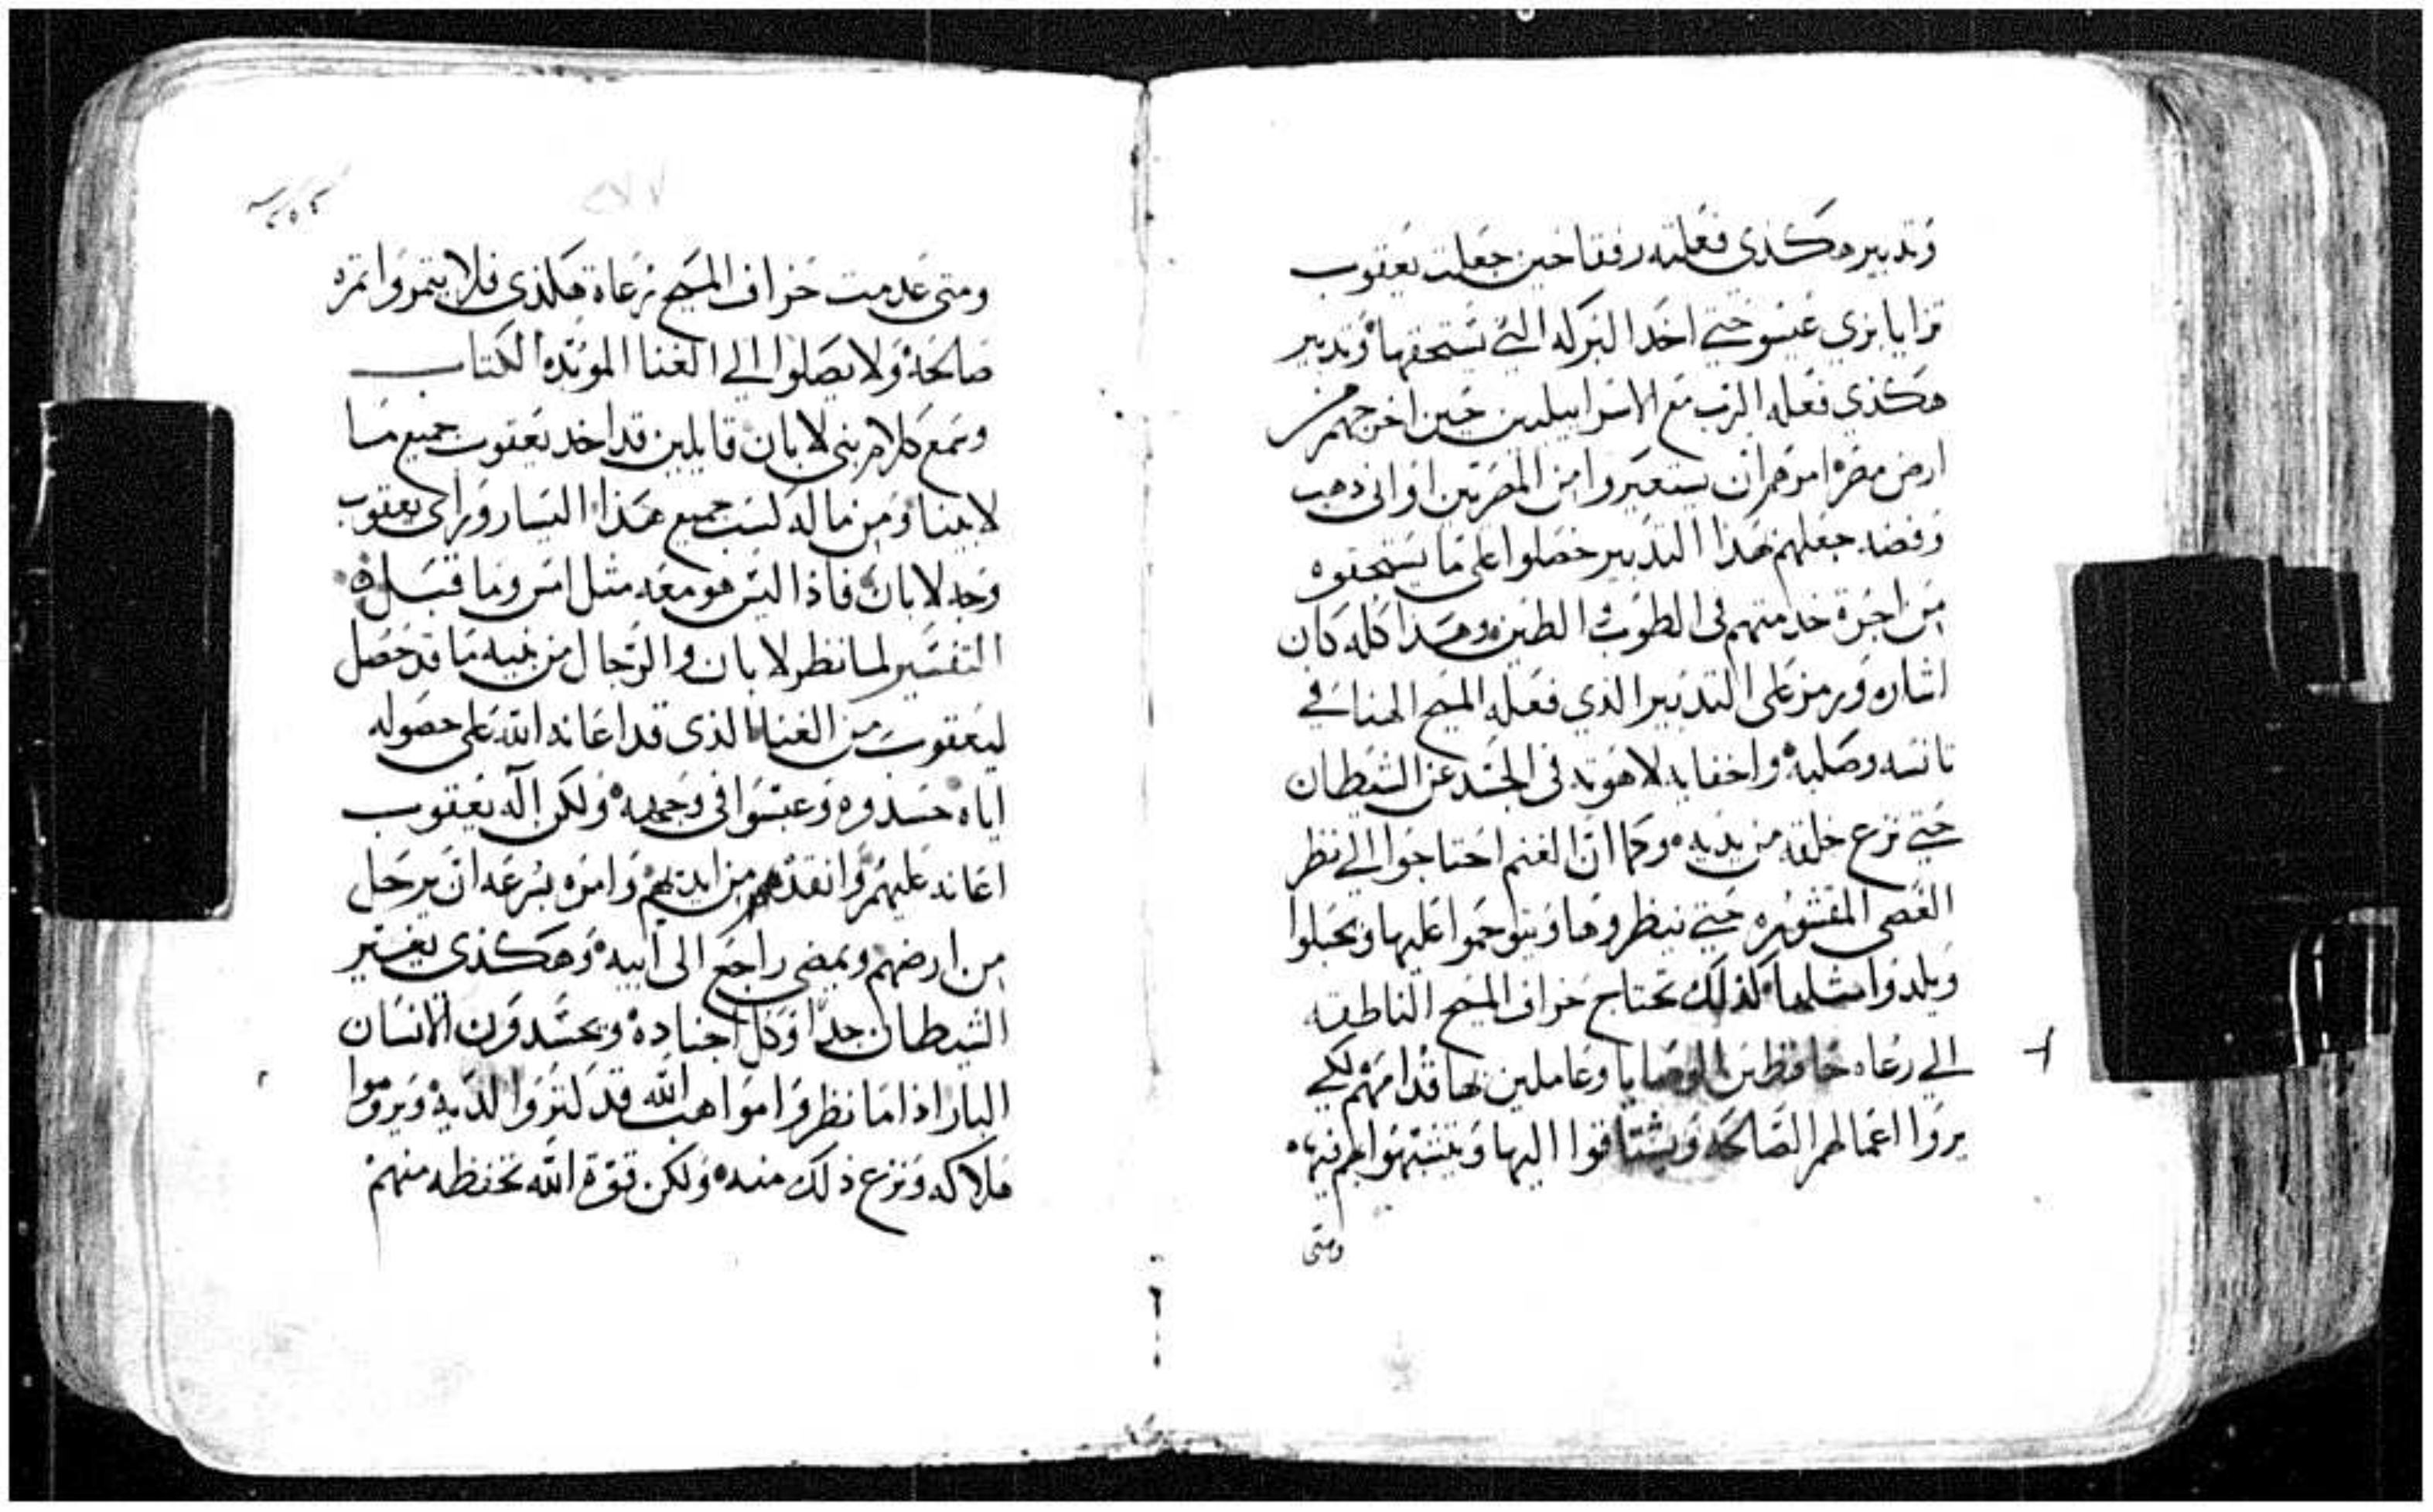 وتدبير هكذي فعلته رفقا حين جعلت يعقوب
تزايا بزي عيسو حتي اخد البركه التي يستحقها وتدبير
هكذي فعله الرب مع الاسراييليين حين اخرجهم من
ارض مصر امرهم ان يستعيروا من المصريين اواني دهب
وفضه جعلهم هدا التدبير حصلوا على ما يستحقوه
من اجرة خدمتهم في الطوب والطين وهذا كله كان
اشاره ورمز على التدبير الذي فعله المسيح الهنا في
تانسه وصلبه واخفايه لاهوته في الجسد عن الشيطان
حتي نزع خلقه من يديه وكما ان الغنم احتاجوا الي نظر
العصي المقشوره حتي ينظروها ويتوحموا عليها ويحبلوا
ويلدوا مثلها كذلك تحتاج خراف المسيح الناطقه
الي رعاه حافظين الوصايا وعاملين بها قدامهم لكي
يروا اعمالهم الصالحه ويشتاقوا اليها ويتشبهوا بهم فيها
ومتى
ومتى عدمت خراف المسيح رعاة هكذى فلا يتمروا تمره
صالحة ولا يصلوا الي الغنا الموبده الكتاب
وسمع كلام بني لابان قايلين قد اخد يعقوب جميع ما
لابينا ومن ماله كسب جميع هذا اليسار وراى يعقوب
وجه لابان فاذا ليس هو معه مثل امس وما قبله
التفسير لما نظر لابان والرجال من بنيه ما قد حصل
ليعقوب من الغنا الذى قد اعانه الله على حصوله
اياه حسدوه وعبسوا في وجهه ولكن اله يعقوب
اعانه عليهم وانقده من ايديهم وامره بسرعه ان يرحل
من ارضهم ويمضي راجع الى ابيه وهكذى يغتير
الشيطان جدا وكل اجناده ويحسدون الانسان
البار اذا ما نظروا مواهب الله قد كتروا لديه ويروموا
هلاكه ونزع ذلك منه ولكن قوة الله تحفظه منهم